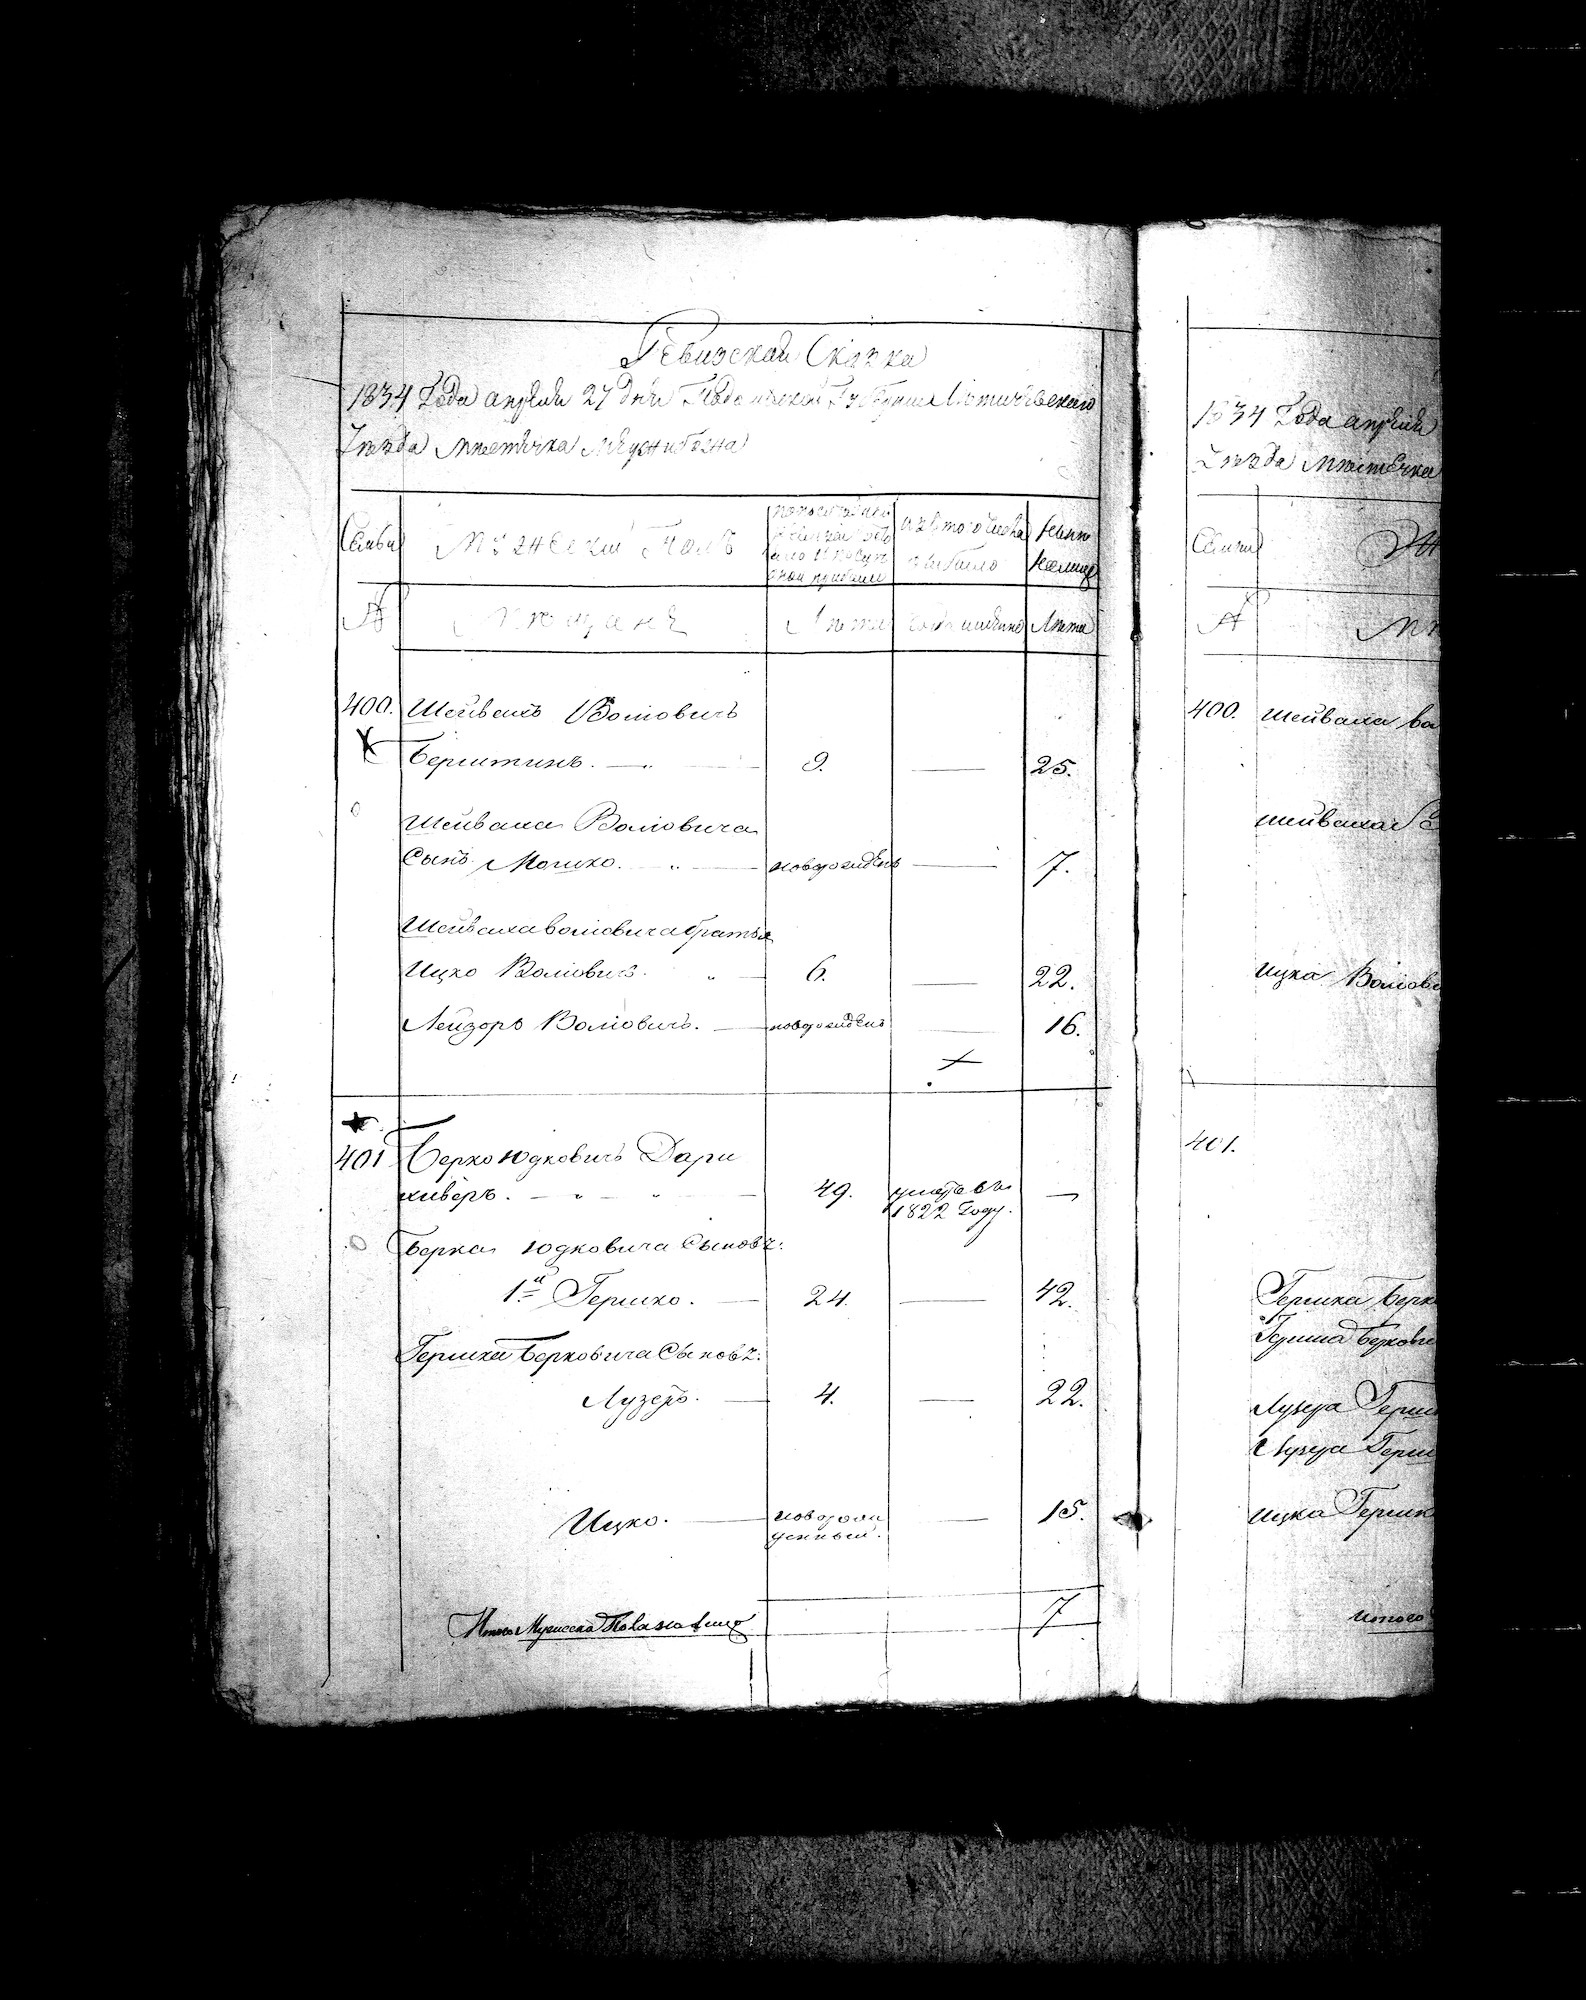 Ревизская Сказка
1834 Года апреля 27 дня Подольской Губернии Летичевского
Уезда местечка Меджибожа
Семьи
Мужеский Полъ
по последней
ревизии
изъ того числа
выбыло
ныне
налицо
№
Мещане
Лета
Лета
400. Шейвахъ Волiовичъ
Берштинъ. 9. 25.
Шейваха Волiовича
Сынъ Мошко. новорожденъ 7.
Шейваха Волiовича братья
Ицко Волiовичъ. 6. 22.
Лейзоръ Волiовичъ. новорожденъ 16.
401 Берко Юдковичъ Дари
киверъ. 49.
1822 Году.
Берка Юдковича Сыновъя:
1й Гершко. 24. 42.
Гершка Берковича Сыновъя:
Лузеръ. 4. 22.
Ицко. новорож
денный. 15.
Итого Мужеска Пола налицо 7
1834 Года апреля
Уезда местечка
Семьи
№
400. Шейваха Во
Шейваха
Ицка Волiови
401.
Гершка Берк
Гершка Беркови
Лузера Герш
Лузера Герш
Ицка Гершк
Итого